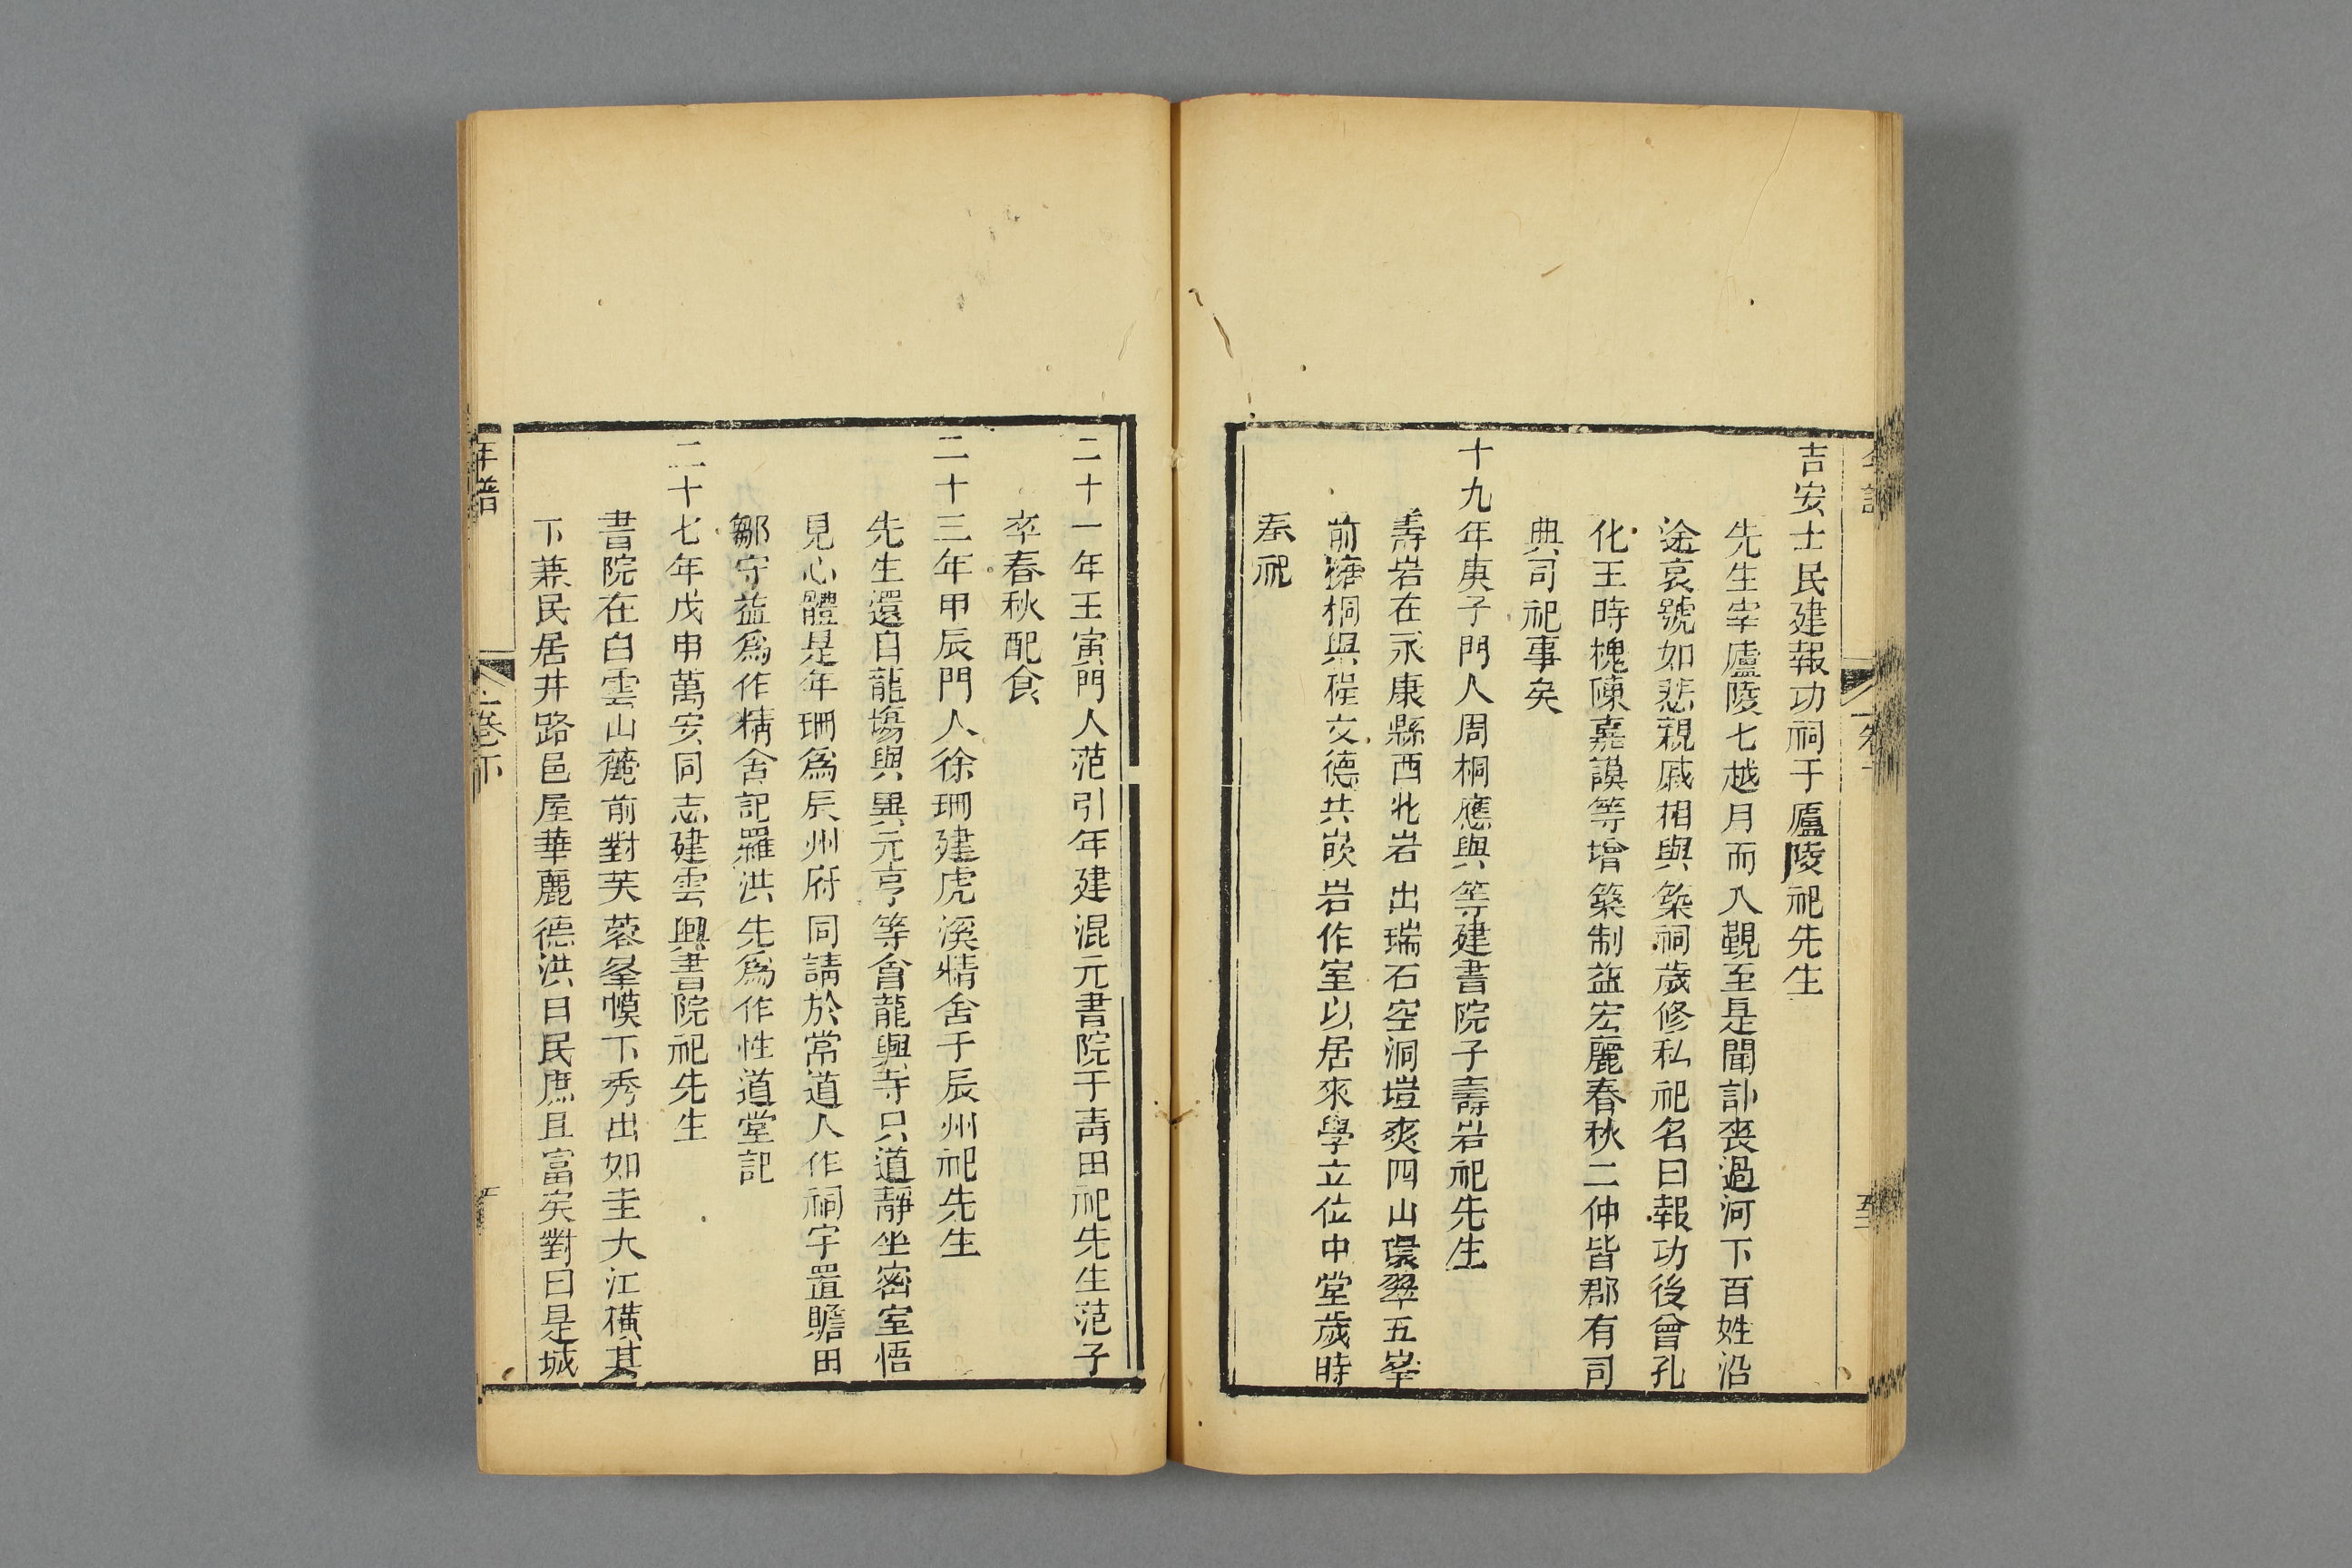 吉安士民建報功祠于廬陵祀先生
先生宰廬陵七越月而入覲至是聞訃喪過河下百姓沿
途哀號如悲親戚相與築祠歲修私祀名曰報功後曾孔
化王時槐陳嘉謨等增築制益宏麗春秋二仲皆郡有司
典司祀事矣
十九年庚子門人周桐應典等建書院于壽岩祀先生
壽岩在永康縣西北岩出瑞石空洞塏爽四山環翠五峯
前擁桐與程文德共嵌岩作室以居來學立位中堂歲時
奉祀
二十一年壬寅門人范引年建混元書院于青田祀先生范子
卒春秋配食
二十三年甲辰門人徐珊建虎溪精舍于辰州祀先生
先生還自龍塲與冀元亨等會龍興寺只道靜坐密室悟
見心體是年珊爲辰州府同請於常道人作祠宇置贍田
鄒守益爲作精舍記羅洪先爲作性道堂記
二十七年戊申萬安同志建雲興書院祀先生
書院在白雲山麓前對芙蓉峯幙下秀出如圭大江橫其
下兼民居井路邑屋華麗德洪曰民庶且富矣對曰是城
年譜
卷下